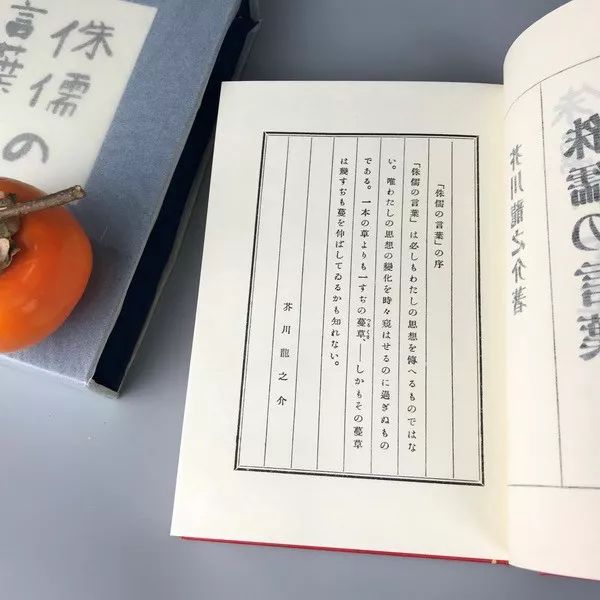 侏儒の言葉
芥川龍之介著
「侏儒の言葉」の序
「侏儒の言葉」は必しもわたしの思想を傳へるものではな
い。唯わたしの思想の變化を時々窺はせるのに過ぎぬもの
である。一本の草よりも一すぢの蔓草、――しかもその蔓草
は幾すぢも蔓を伸ばしてゐるかも知れない。
芥川龍之介
侏儒の
言葉